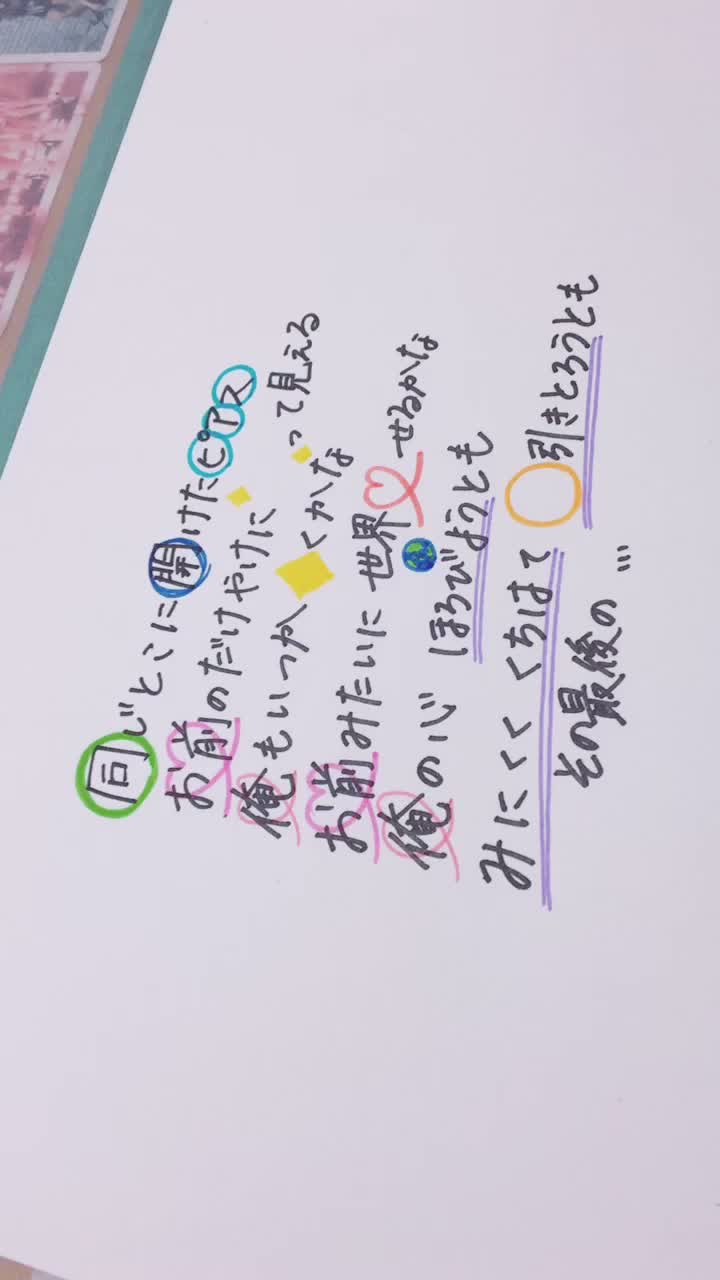 同じとこに開けたピアス
お前のだけやけに って見える
俺もいつか くかな
お前みたいに世界 せるかな
俺の心 ほろびようとも
みにくく くちはて 引きとろうとも
その最後の…